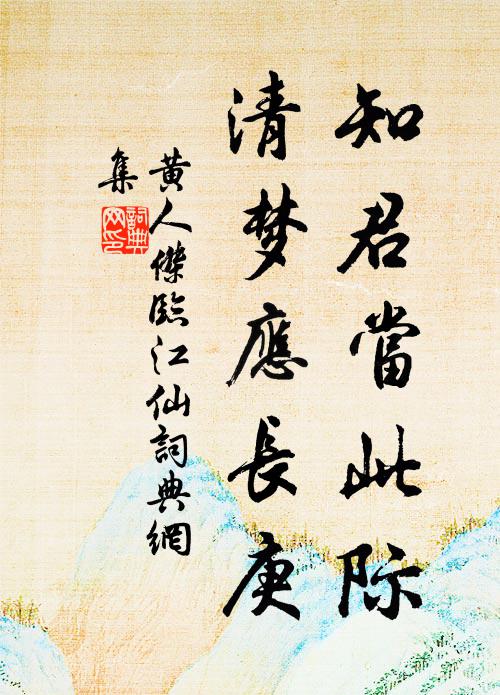 知君當此际
清梦應長庚
黄人傑臨江仙詞典網
集
詞典网印